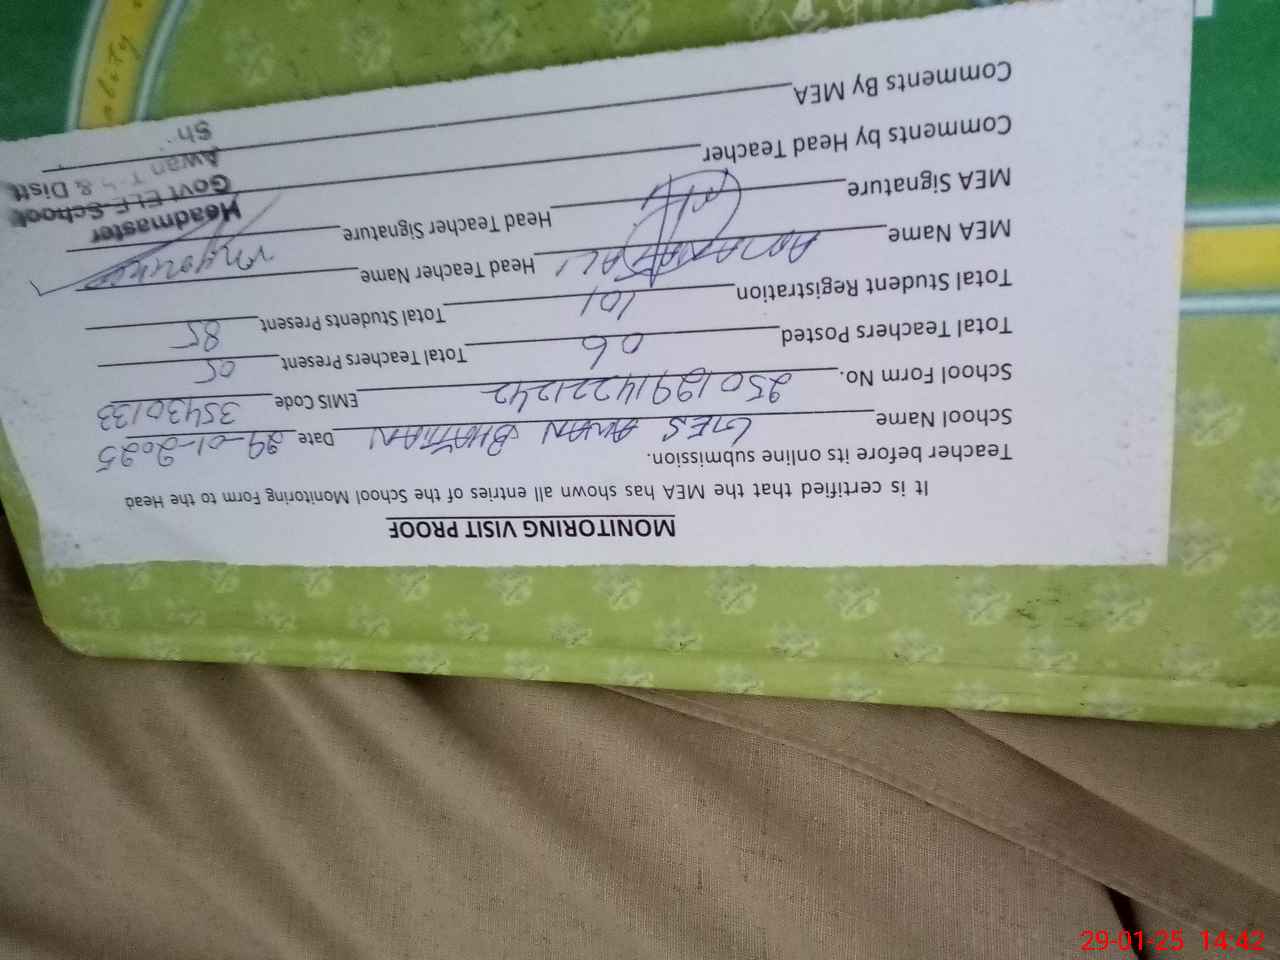 MONITORING VISIT PROOF
It is certified that the MEA has shown all entries of the School Monitoring Form to the Head
Teacher before its online submission.
School Name GES AWAN BHATIAN Date 29-01-2025
School Form No. 25012914221242 EMIS Code 35430133
Total Teachers Posted 06 Total Teachers Present 05
Total Student Registration 101 Total Students Present 85
MEA Name AMANAT ALI Head Teacher Name
MEA Signature Head Teacher Signature
Headmaster
Comments by Head Teacher Govt ELE School
Awan & Distt
Comments By MEA Sh
29-01-25 14:42